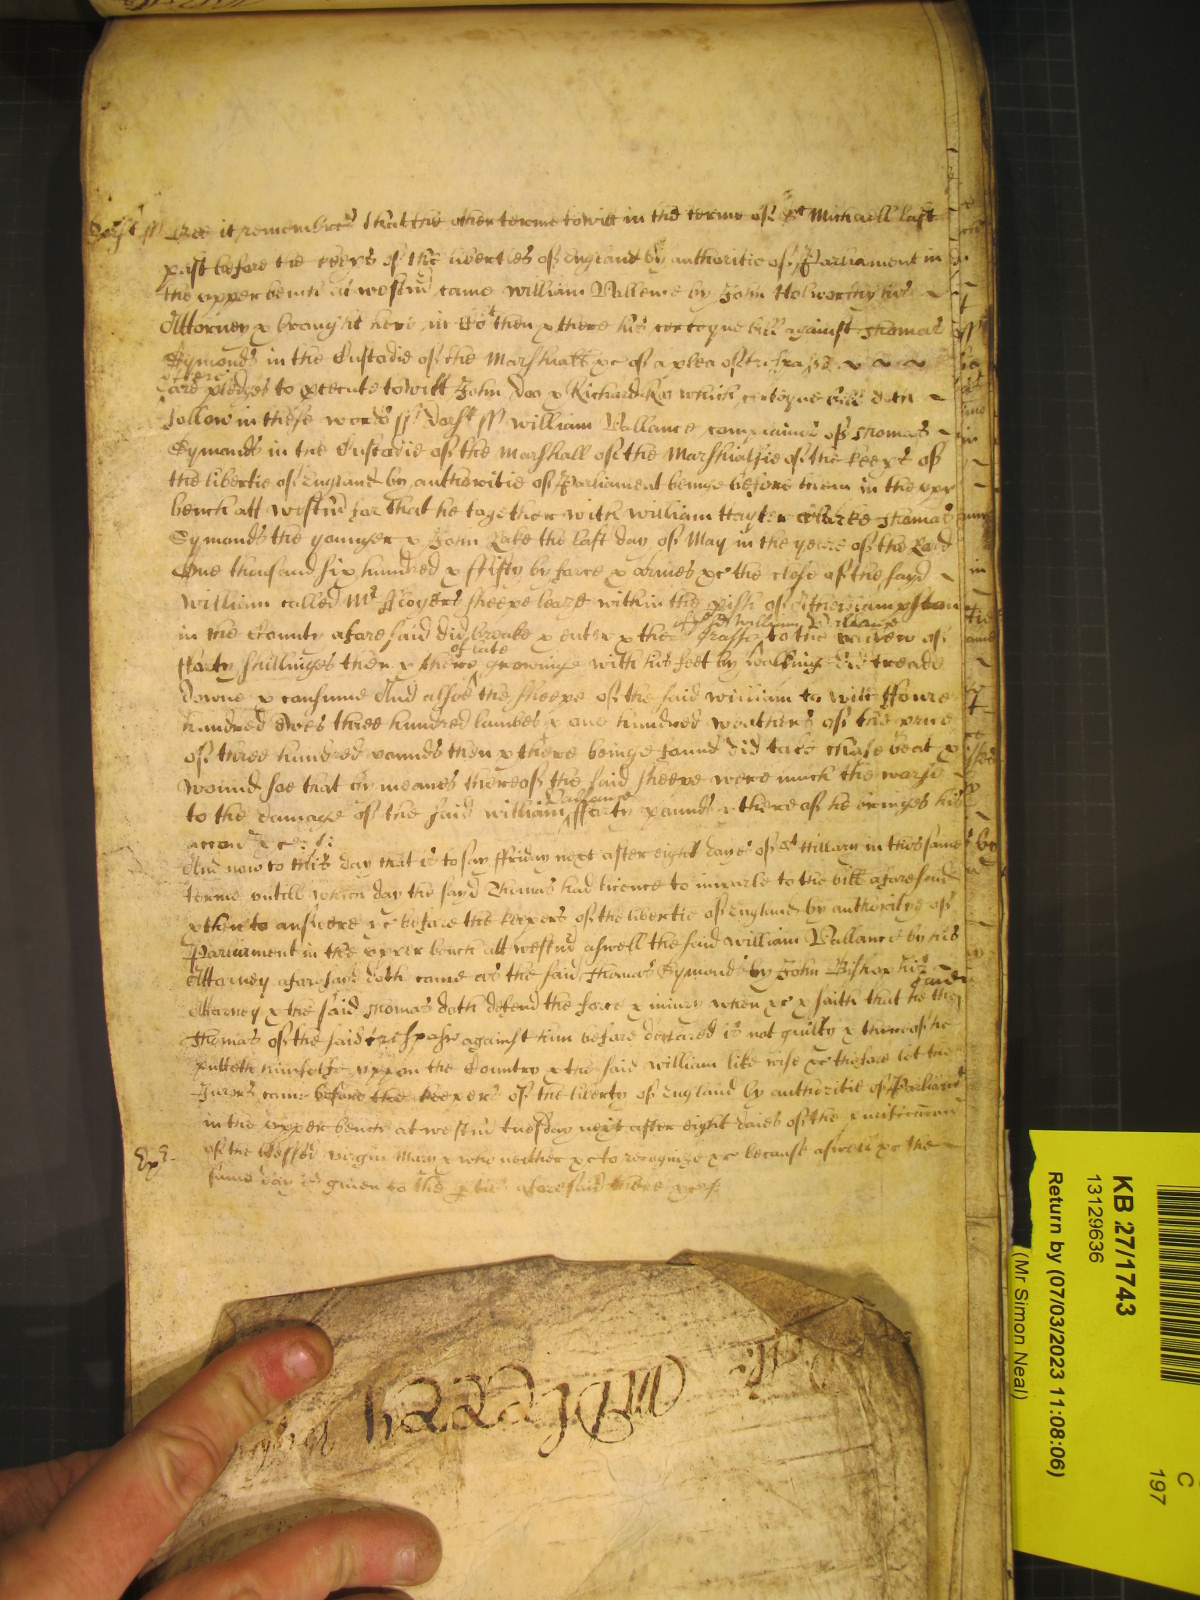 Dorst ss Bee it remembred that the other terme to witt in the terme of St Michaell last
past before the keepers of the liberties of England by authoritie of Parliament in
the upper bench at Westm came William Ballance by John Holworthy his
Attorney & brought here in Co'rt then & there his certeyne bill against Thomas
Symonds in the Custodie of the Marshall &c of a plea of trespasse
& there
are pledges to prosecute to witt John Doo & Richard Roo which certeyne bill doth
follow in these words ss Dorst ss William Ballance complaines of Thomas
Symonds in the Custodie of the Marshall of the Marshialsie of the keep's of
the libertie of England by authoritie of Parliament beinge before them in the upp
bench att Westm for that he together with William Hayter Clarke Thomas
Symonds the younger & John Lake the last day of May in the yeare of the Lord
One thousand six hundred & ffifty by force & armes &c the close of the sayd
William called Mr ffloyers sheepe leaze within the pish of
in the County aforesaid did breake & enter & the grasse of ye sd William Ballance to the vallew of
fforty shillinges then & there of late growinge with his feet by walkinge did treade
downe & consume And alsoe the sheepe of the said William to witt ffoure
hundred Ewes three hundred lambes & one hundred weathers of the price
of three hundred pounds then & there beinge found did take chase beat &
wound soe that by meanes thereof the said sheepe were much the worse
to the damage of the said William Ballance fforty pounds & thereof he bringes his
accon &c
And now to this day that is to say ffriday next after eight dayes of St Hillary in this same
terme untill which day the sayd Thomas had licence to imparle to the bill aforesaid
& then to answere &c before the keepers of the libertie of England by authoritye of
Parliament in the upper bench att Westm aswell the said William Ballance by his
Attorney aforesaid doth come as the said Thomas Symonds by John Bishop his
Attorney & the said Thomas doth defend the force & iniury when &c & saith that he the
Thomas of the said trespasse against him before declared is not guilty & thereof he
putteth himselfe uppon the Country & the said William like wise &c therefore let the
Jurors come before the keepers of the liberty of England by authoritie of Parliamt
in the upper bench at Westm tuesday next after eight daies of the purificacon
of the blessed virgin Mary & who neither &c to recognize &c because aswell &c the
same day is given to the pties aforesaid there &c
Exr
KB 27/1743
13129636
Return by (07/03/2023 11:08:06)
(Mr Simon Neal)
C
197